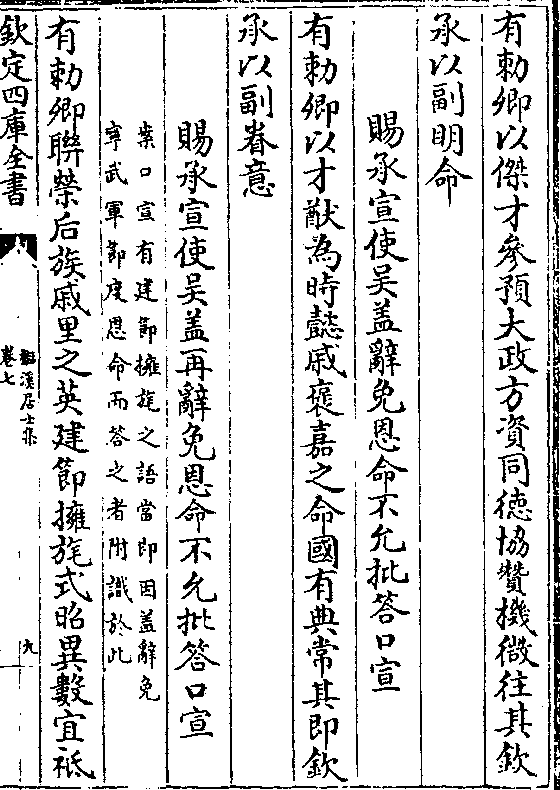 有勅卿以傑才參預大政方資同德協贊機微往其欽
承以副明命
賜承宣使吴蓋辭免恩命不允批答口宣
有勅卿以才猷為時懿戚褒嘉之命國有典常其即欽
承以副眷意
賜承宣使吴蓋再辭免恩命不允批答口宣
案口宣有建節擁旄之語當即因蓋辭免
寧武軍節度恩命而答之者附識於此
有勅卿聯榮后族戚里之英建節擁旄式昭異數宜祗
欽定四庫全書
溪居士集
卷七
九